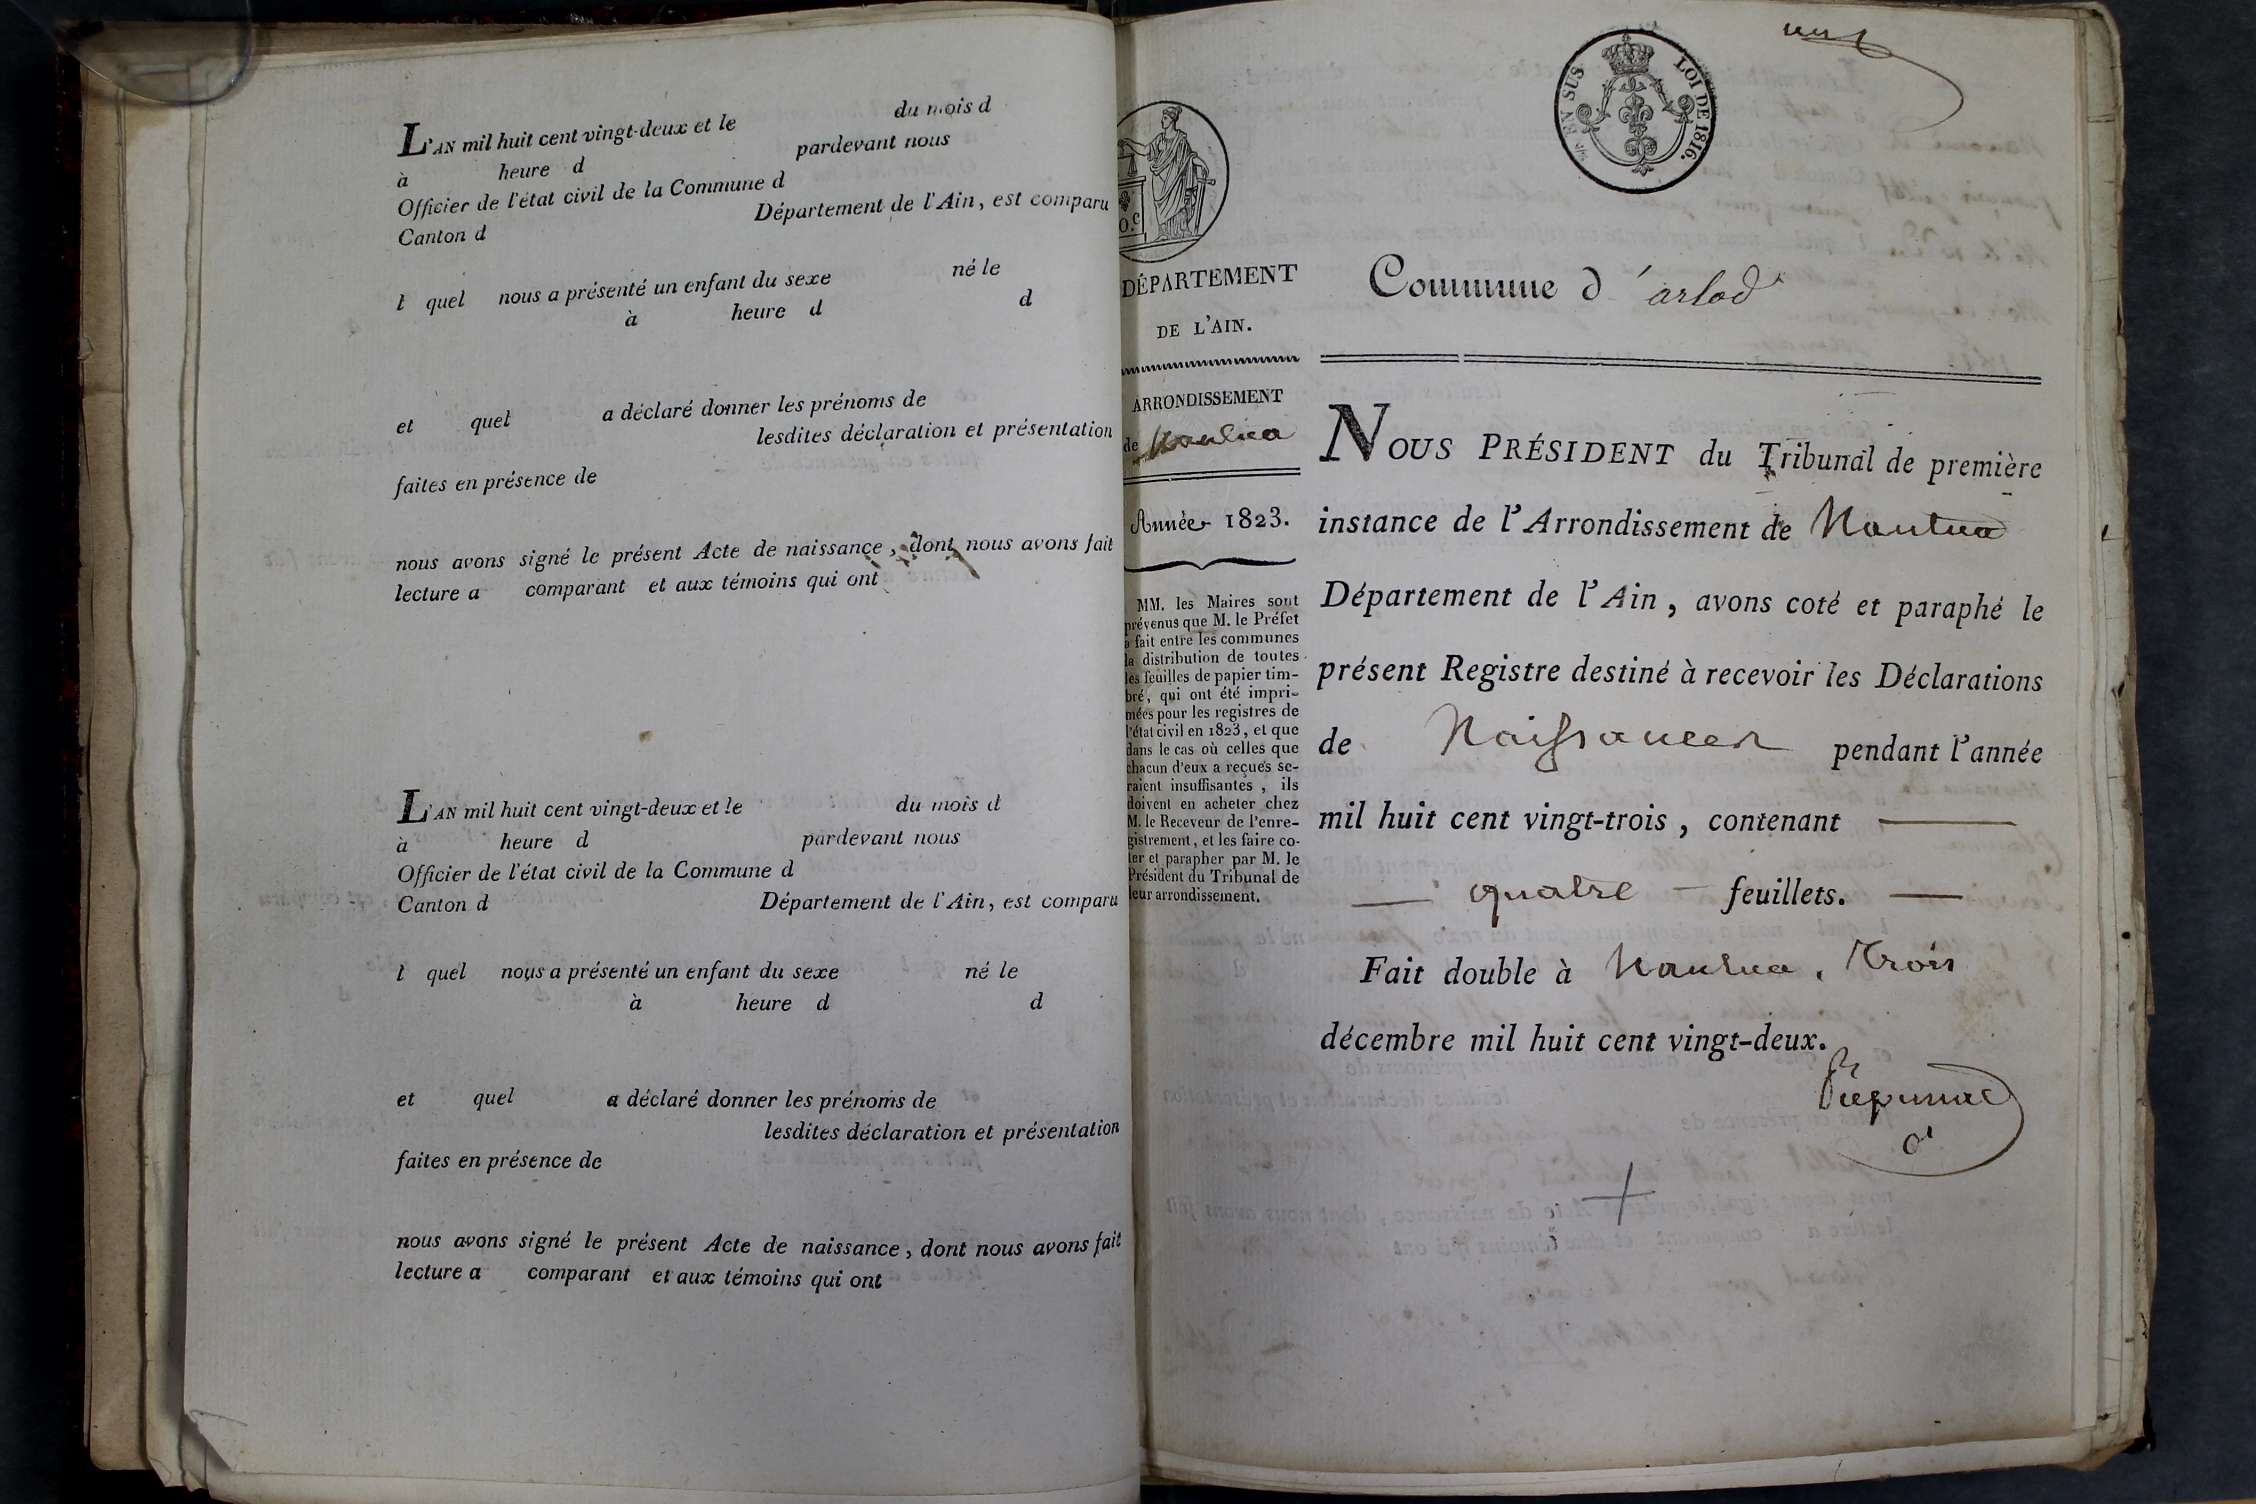 L'AN mil huit cent vingt-deux et le du mois d
à heure d pardevant nous
Officier de l'état civil de la Commune d
Canton d Département de l'Ain, est comparu
l quel nous a présenté un enfant du sexe né le
à heure d d
et quel a déclaré donner les prénoms de
lesdites déclaration et présentation
faites en présence de
nous avons signé le présent Acte de naissance, dont nous avons fait
lecture a comparant et aux témoins qui ont
L'AN mil huit cent vingt-deux et le du mois d
à heure d pardevant nous
Officier de l'état civil de la Commune d
Canton d Département de l'Ain, est comparu
l quel nous a présenté un enfant du sexe né le
à heure d d
et quel a déclaré donner les prénoms de
lesdites déclaration et présentation
faites en présence de
nous avons signé le présent Acte de naissance, dont nous avons fait
lecture a comparant et aux témoins qui ont
EN SUS LOI DE 1816.
DÉPARTEMENT
DE L'AIN.
ARRONDISSEMENT
de Nantua
Année 1823.
MM. les Maires sont
prévenus que M. le Préfet
a fait entre les communes
la distribution de toutes
les feuilles de papier tim-
bré, qui ont été impri-
mées pour les registres de
l'état civil en 1823, et que
dans le cas où celles que
chacun d'eux a reçues se-
raient insuffisantes, ils
doivent en acheter chez
M. le Receveur de l'enre-
gistrement, et les faire co-
ter et parapher par M. le
Président du Tribunal de
leur arrondissement.
Commune d'arlod
NOUS PRÉSIDENT du Tribunal de première
instance de l'Arrondissement de Nantua
Département de l'Ain, avons coté et paraphé le
présent Registre destiné à recevoir les Déclarations
de Naissances pendant l'année
mil huit cent vingt-trois, contenant —
— quatre — feuillets. —
Fait double à Nantua, trois
décembre mil huit cent vingt-deux.